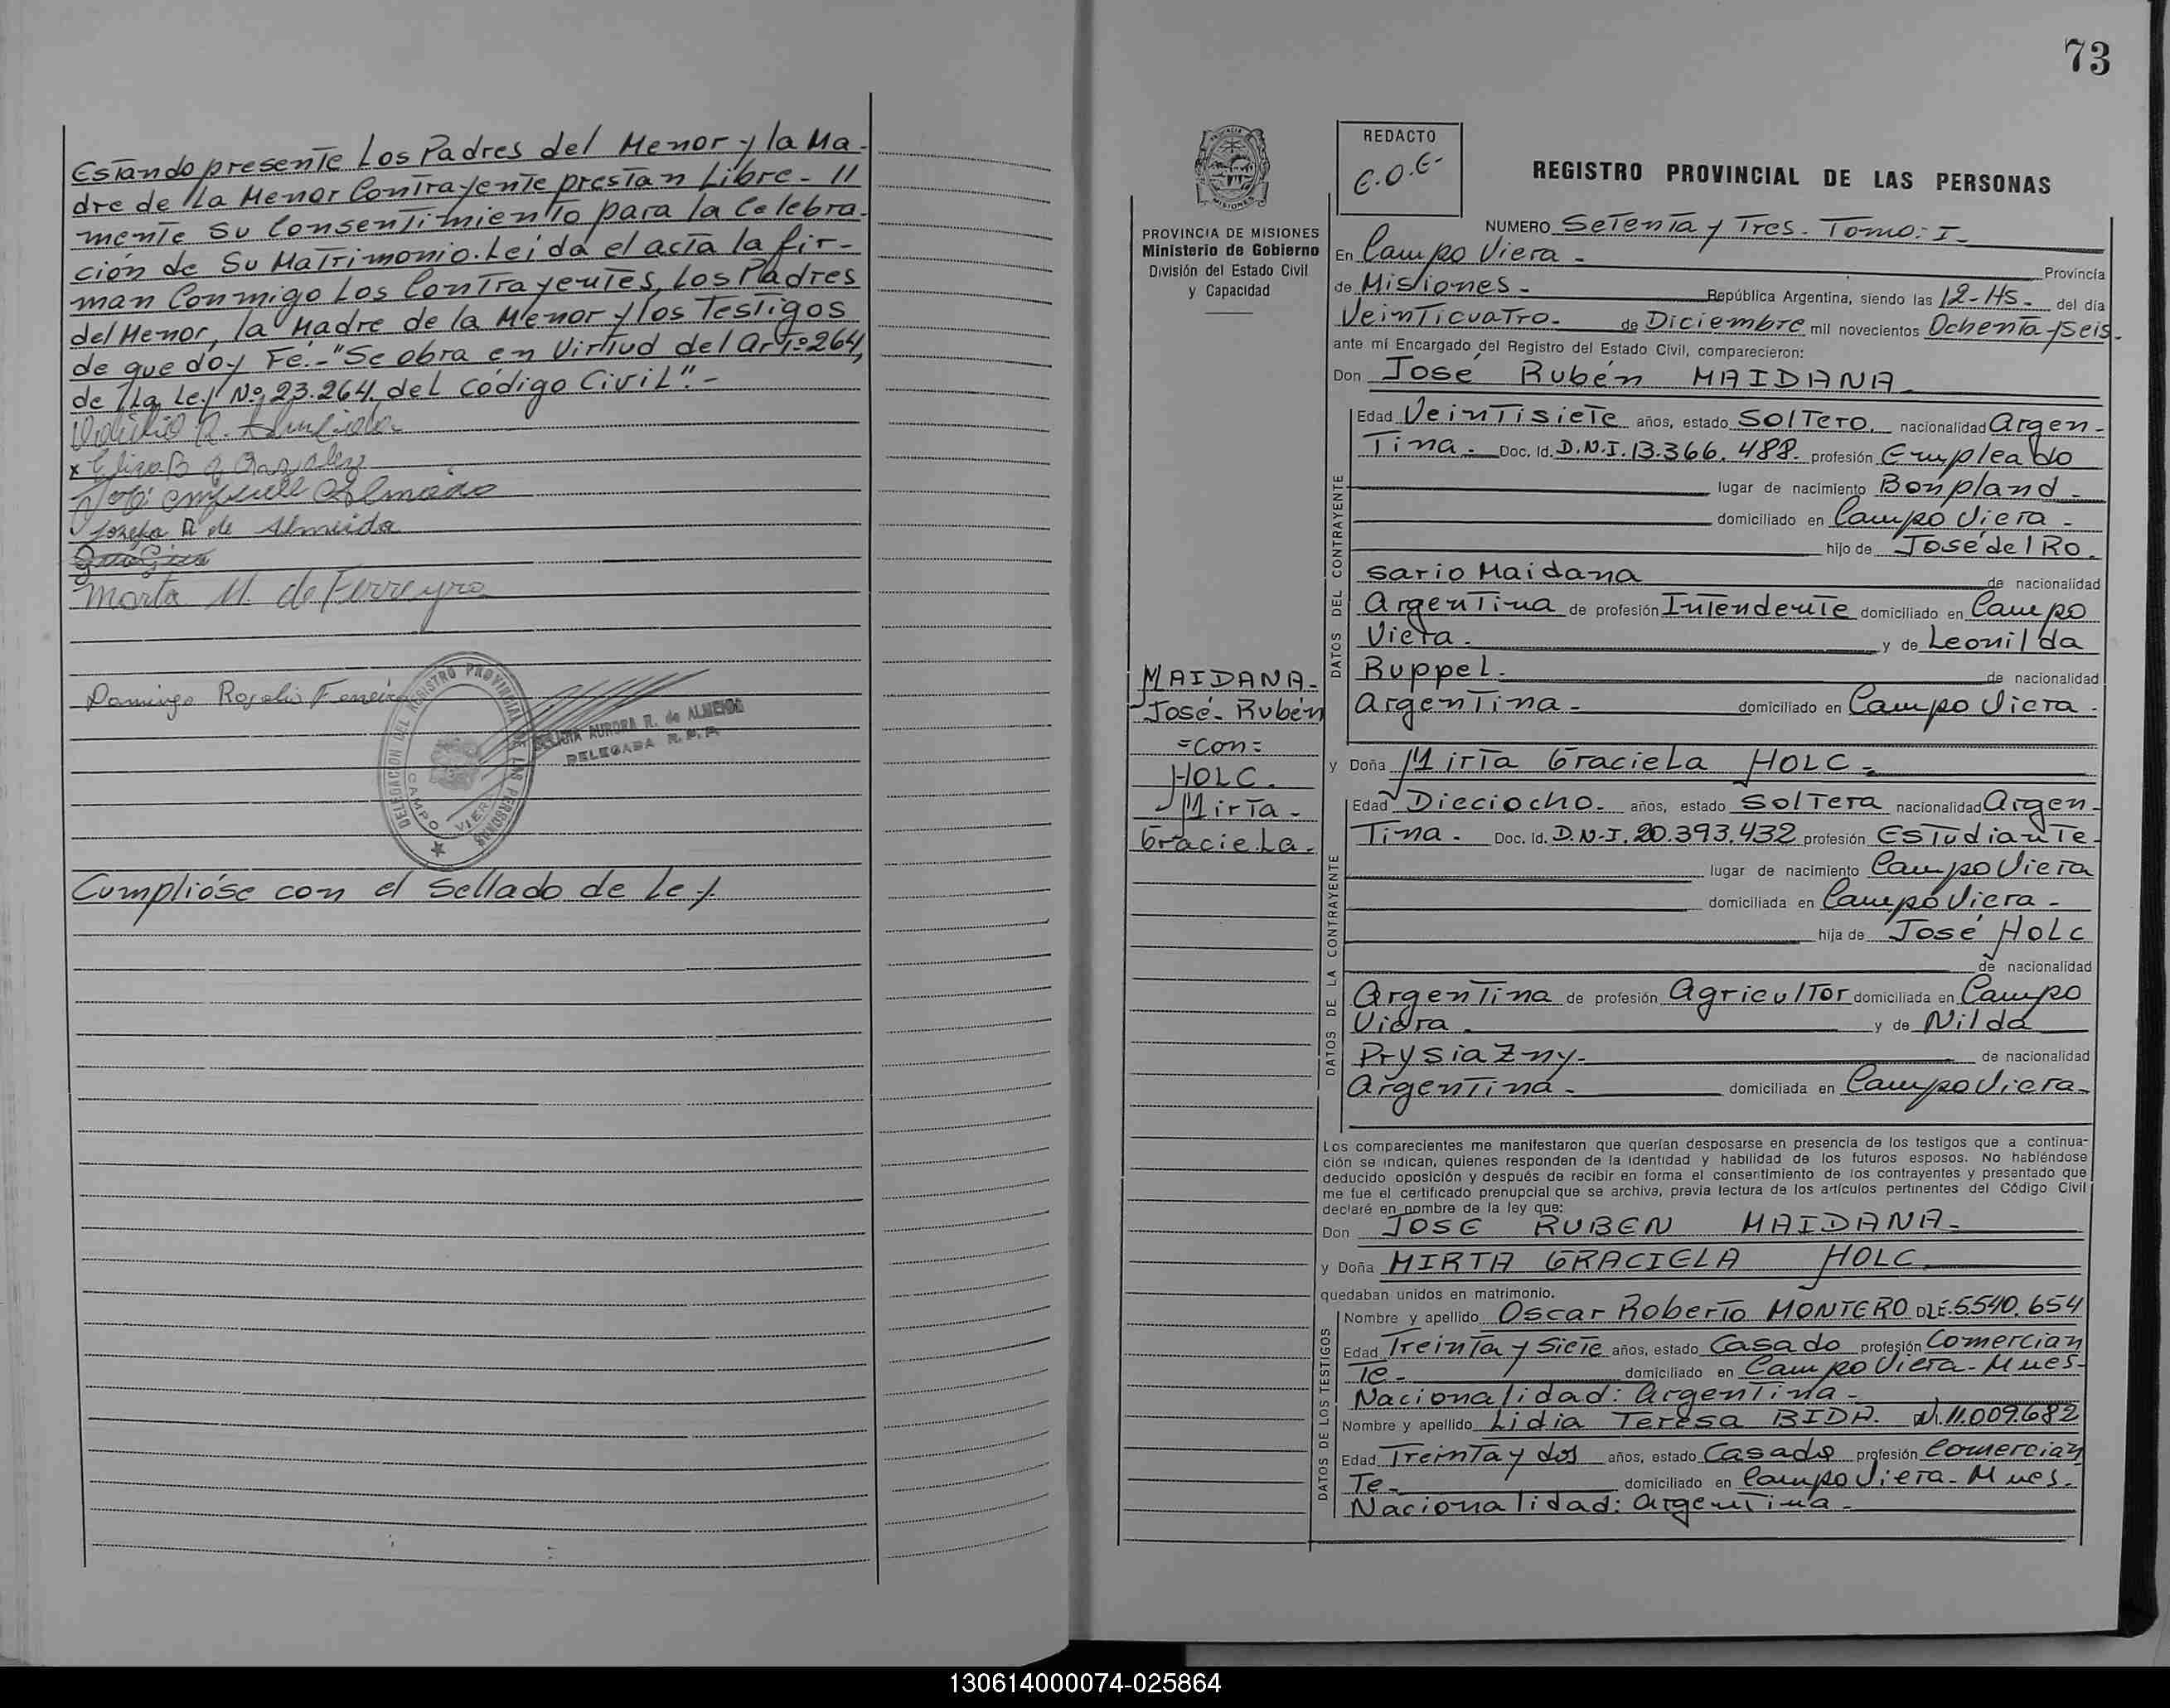 Estando presente Los Padres del Menor y la Ma-
dre de la Menor Contrayente prestan Libre- //
mente su Consentimiento para la Celebra-
ción de Su Matrimonio. Leída el acta la fir-
man Conmigo Los Contrayentes, Los Padres
del Menor, la Madre de la Menor y los Testigos
de que doy Fé.- "Se obra en Virtiud del Artº 264,
de lla Ley Nº 23.264, del código Civil".-
Josefa R de Almeida
Marta M. de Ferreyra
Domingo Rogelio Ferreira
DELEGACION DEL REGISTRO PROVINCIAL DE LAS PERSONAS
CAMPO VIERA
AURORA R. de ALMEIDA
DELEGADA R.P.P.
Cumplióse con el Sellado de Ley
73
REDACTO
C.O.E-
REGISTRO PROVINCIAL DE LAS PERSONAS
PROVINCIA DE MISIONES
Ministerio de Gobierno
División del Estado Civil
y Capacidad
NUMERO Setenta y Tres. Tomo: I-
En Campo Viera - Provincia
de Misiones - República Argentina, siendo las 12-Hs- del día
Veinticuatro- de Diciembre mil novecientos Ochenta y Seis-
ante mí Encargado del Registro del Estado Civil, comparecieron:
Don José Rubén MAIDANA-
DATOS DEL CONTRAYENTE
Edad Veintisiete años, estado SolTero. nacionalidad Argen-
Tina. Doc. Id. D.N.I. 13.366.488. profesión Empleado
lugar de nacimiento Bonpland-
domiciliado en Campo Viera-
hijo de José del Ro-
sario Maidana de nacionalidad
Argentina de profesión Intendente domiciliado en Campo
Viera. y de Leonilda
Ruppel. de nacionalidad
Argentina- domiciliado en Campo Viera-
MAIDANA-
José- Rubén
=con=
HOLC.
Mirta-
Graciela.
y Doña Mirta Graciela HOLC-
DATOS DE LA CONTRAYENTE
Edad Dieciocho- años, estado Soltera nacionalidad Argen-
Tina- Doc. Id. D.N.I. 20.393.432 profesión Estudiante-
lugar de nacimiento Campo Viera
domiciliada en Campo Viera-
hija de José HOLC
de nacionalidad
Argentina de profesión Agricultor domiciliada en Campo
Viera. y de Nilda
Prysiazny- de nacionalidad
Argentina- domiciliada en Campo Viera-
Los comparecientes me manifestaron que querían desposarse en presencia de los testigos que a continua-
ción se indican, quienes responden de la identidad y habilidad de los futuros esposos. No habiéndose
deducido oposición y después de recibir en forma el consentimiento de los contrayentes y presentado que
me fue el certificado prenupcial que se archiva, previa lectura de los artículos pertinentes del Código Civil
declaré en nombre de la ley que:
Don JOSE RUBEN MAIDANA-
y Doña MIRTA GRACIELA HOLC
quedaban unidos en matrimonio.
DATOS DE LOS TESTIGOS
Nombre y apellido Oscar Roberto MONTERO DLE.5.540.654
Edad Treinta y Siete años, estado Casado profesión Comercian
Te- domiciliado en Campo Viera-Mnes-
Nacionalidad: Argentina-
Nombre y apellido Lidia Teresa BIDA. 11.009.682
Edad Treinta y dos años, estado Casado profesión Comercian
Te- domiciliado en Campo Viera-Mnes.
Nacionalidad: Argentina-
130614000074-025864